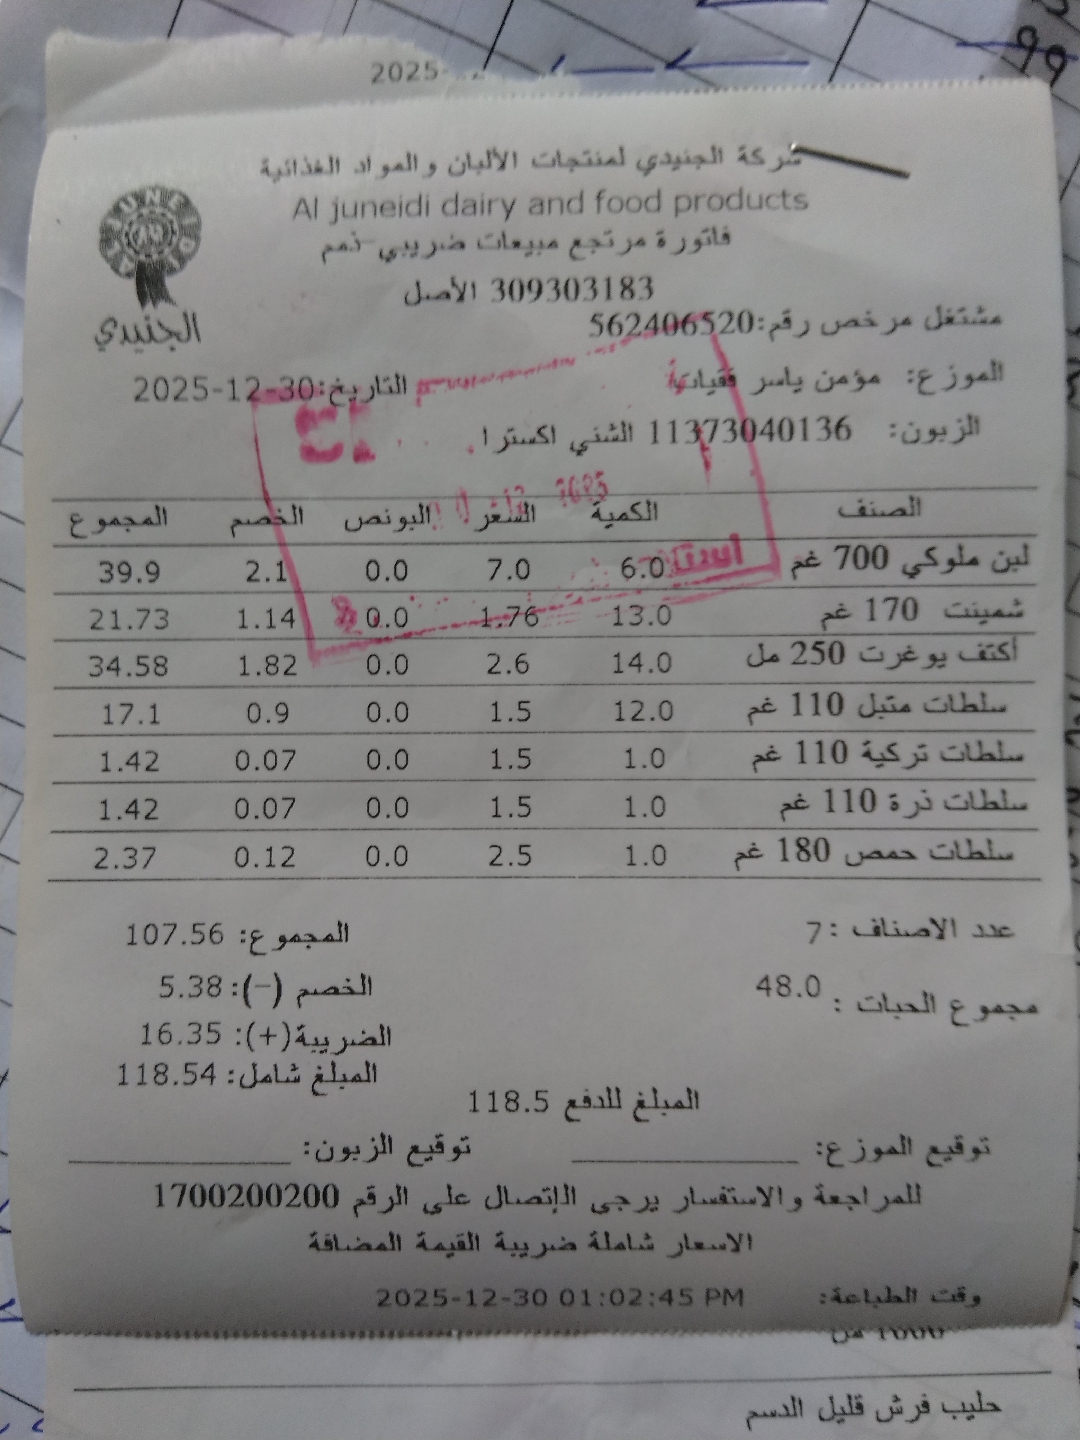 2025-
شركة الجنيدي لمنتجات الألبان والمواد الغذائية
Al juneidi dairy and food products
فاتورة مرتجع مبيعات ضريبي-ذمم
309303183 الأصل
الجنيدي
مشتغل مرخص رقم:562406520
الموزع: مؤمن ياسر فقيات التاريخ:2025-12-30
الزبون: 11373040136 الشني اكسترا
الصنف الكمية السعر البونص الخصم المجموع
لبن ملوكي 700 غم 6.0 7.0 0.0 2.1 39.9
شمينت 170 غم 13.0 1.76 0.0 1.14 21.73
أكتف يوغرت 250 مل 14.0 2.6 0.0 1.82 34.58
سلطات متبل 110 غم 12.0 1.5 0.0 0.9 17.1
سلطات تركية 110 غم 1.0 1.5 0.0 0.07 1.42
سلطات ذرة 110 غم 1.0 1.5 0.0 0.07 1.42
سلطات حمص 180 غم 1.0 2.5 0.0 0.12 2.37
عدد الاصناف :7 المجموع: 107.56
مجموع الحبات : 48.0 الخصم (-): 5.38
الضريبة(+): 16.35
المبلغ شامل: 118.54
المبلغ للدفع 118.5
توقيع الموزع: توقيع الزبون:
للمراجعة والاستفسار يرجى الإتصال على الرقم 1700200200
الاسعار شاملة ضريبة القيمة المضافة
وقت الطباعة: 2025-12-30 01:02:45 PM
1000 مل
حليب فرش قليل الدسم